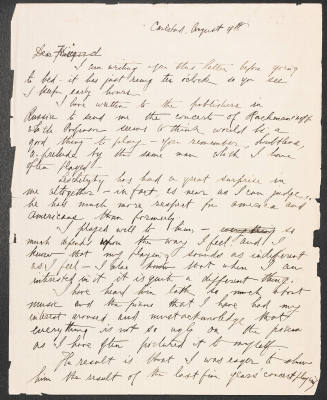 Carlsbad, August 9th
Dear
I am writing you this letter before going
to bed - it has just rung ten o'clock so you see
I keep early hours.
I have written to the publishers in
Russia to send me the concerto of Rachmaninoff
which Professor seems to think would be a
good thing to play - You remember, doubtless,
a prelude by the same man which I have
often played.
Leschetizky has had a great surprise in
me altogether - in fact as near as I can judge,
he has much more respect for America and
Americans than formerly.
I played well to him, - so
much depends upon the way I feel and I
know that my playing sounds as indifferent
as I feel - I also know that when I am
interested in it it is quite a different thing.
I have heard him talk so much about
music and the piano that I have had my
interest aroused and must acknowledge that
everything is not so ugly on the piano
as I have often pictured it to myself.
The result is that I was eager to show
him the result of the last five years' concert playing